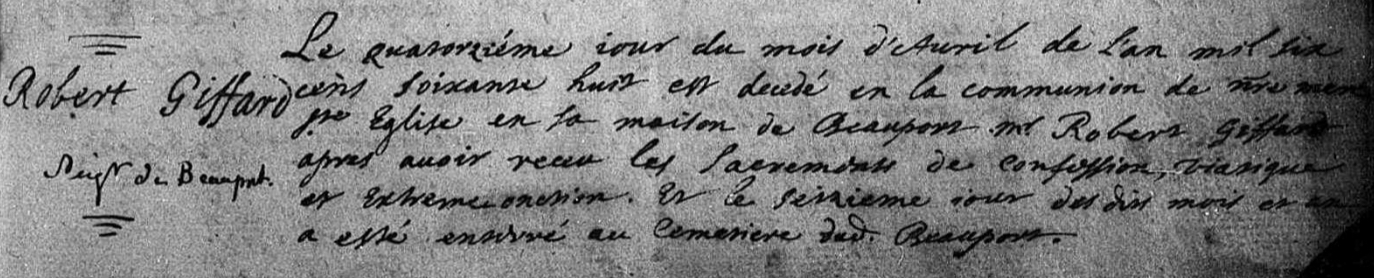 Robert Giffard
Seigr de Beauport.
Le quatorziéme iour du mois d'Auril de l'an mil six
cens soixante huit est decedé en la communion de nre mere
ste Eglise en sa maison de Beauport mr Robert Giffard
apres auoir receu les sacrements de confession, viatique
et Extreme onction. Et le seizieme iour desdits mois et an
a esté enterré au Cemetiere dud. Beauport.